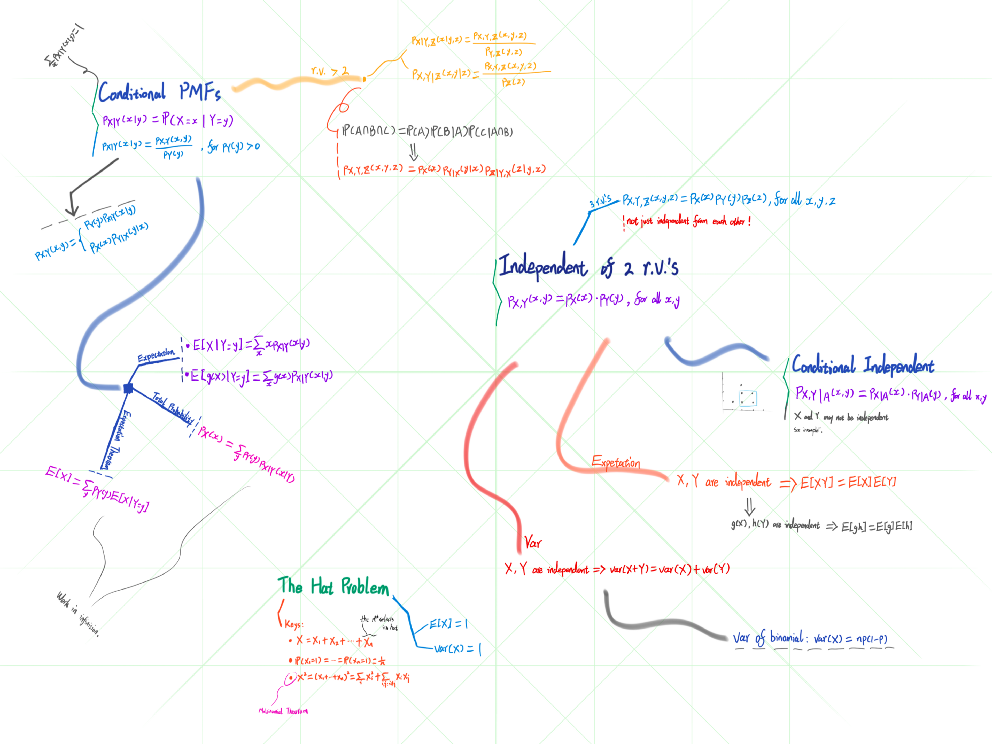 ∑ₓ pX|Y(x|y)=1
Conditional PMFs
pX|Y(x|y) = ℙ(X=x | Y=y)
pX|Y(x|y) = pX,Y(x,y) / pY(y) , for pY(y) > 0
pX,Y(x,y) = { pY(y)pX|Y(x|y)
pX(x)pY|X(y|x)
r.v. > 2
pX|Y,Z(x|y,z) = pX,Y,Z(x,y,z) / pY,Z(y,z)
pX,Y|Z(x,y|z) = pX,Y,Z(x,y,z) / pZ(z)
ℙ(A∩B∩C) = ℙ(A)ℙ(B|A)ℙ(C|A∩B)
⇓
pX,Y,Z(x,y,z) = pX(x) pY|X(y|x) pZ|Y,X(z|y,x)
Expectation
• E[X|Y=y] = ∑ₓ x pX|Y(x|y)
• E[g(X)|Y=y] = ∑ₓ g(x) pX|Y(x|y)
Total Probability
pX(x) = ∑y pY(y) pX|Y(x|y)
Expectation Theorem
E[X] = ∑y pY(y) E[X|Y=y]
Work in infinison.
3 r.v.'s
pX,Y,Z(x,y,z) = pX(x) pY(y) pZ(z), for all x,y,z
! not just independent from each other !
Independent of 2 r.v.'s
pX,Y(x,y) = pX(x) · pY(y), for all x,y
Conditional Independent
pX,Y|A(x,y) = pX|A(x) · pY|A(y), for all x,y
X and Y may not be independent
See example.
Expetation
X, Y are independent ⇒ E[XY] = E[X]E[Y]
⇓
g(X), h(Y) are independent ⇒ E[gh] = E[g]E[h]
Var
X, Y are independent ⇒ var(X+Y) = var(X) + var(Y)
var of binomial: var(X) = np(1-p)
The Hat Problem
Keys:
• X = X₁ + X₂ + ··· + Xₙ
• ℙ(X₁=1) = ··· = ℙ(Xₙ=1) = 1/n
E[X] = 1
var(X) = 1